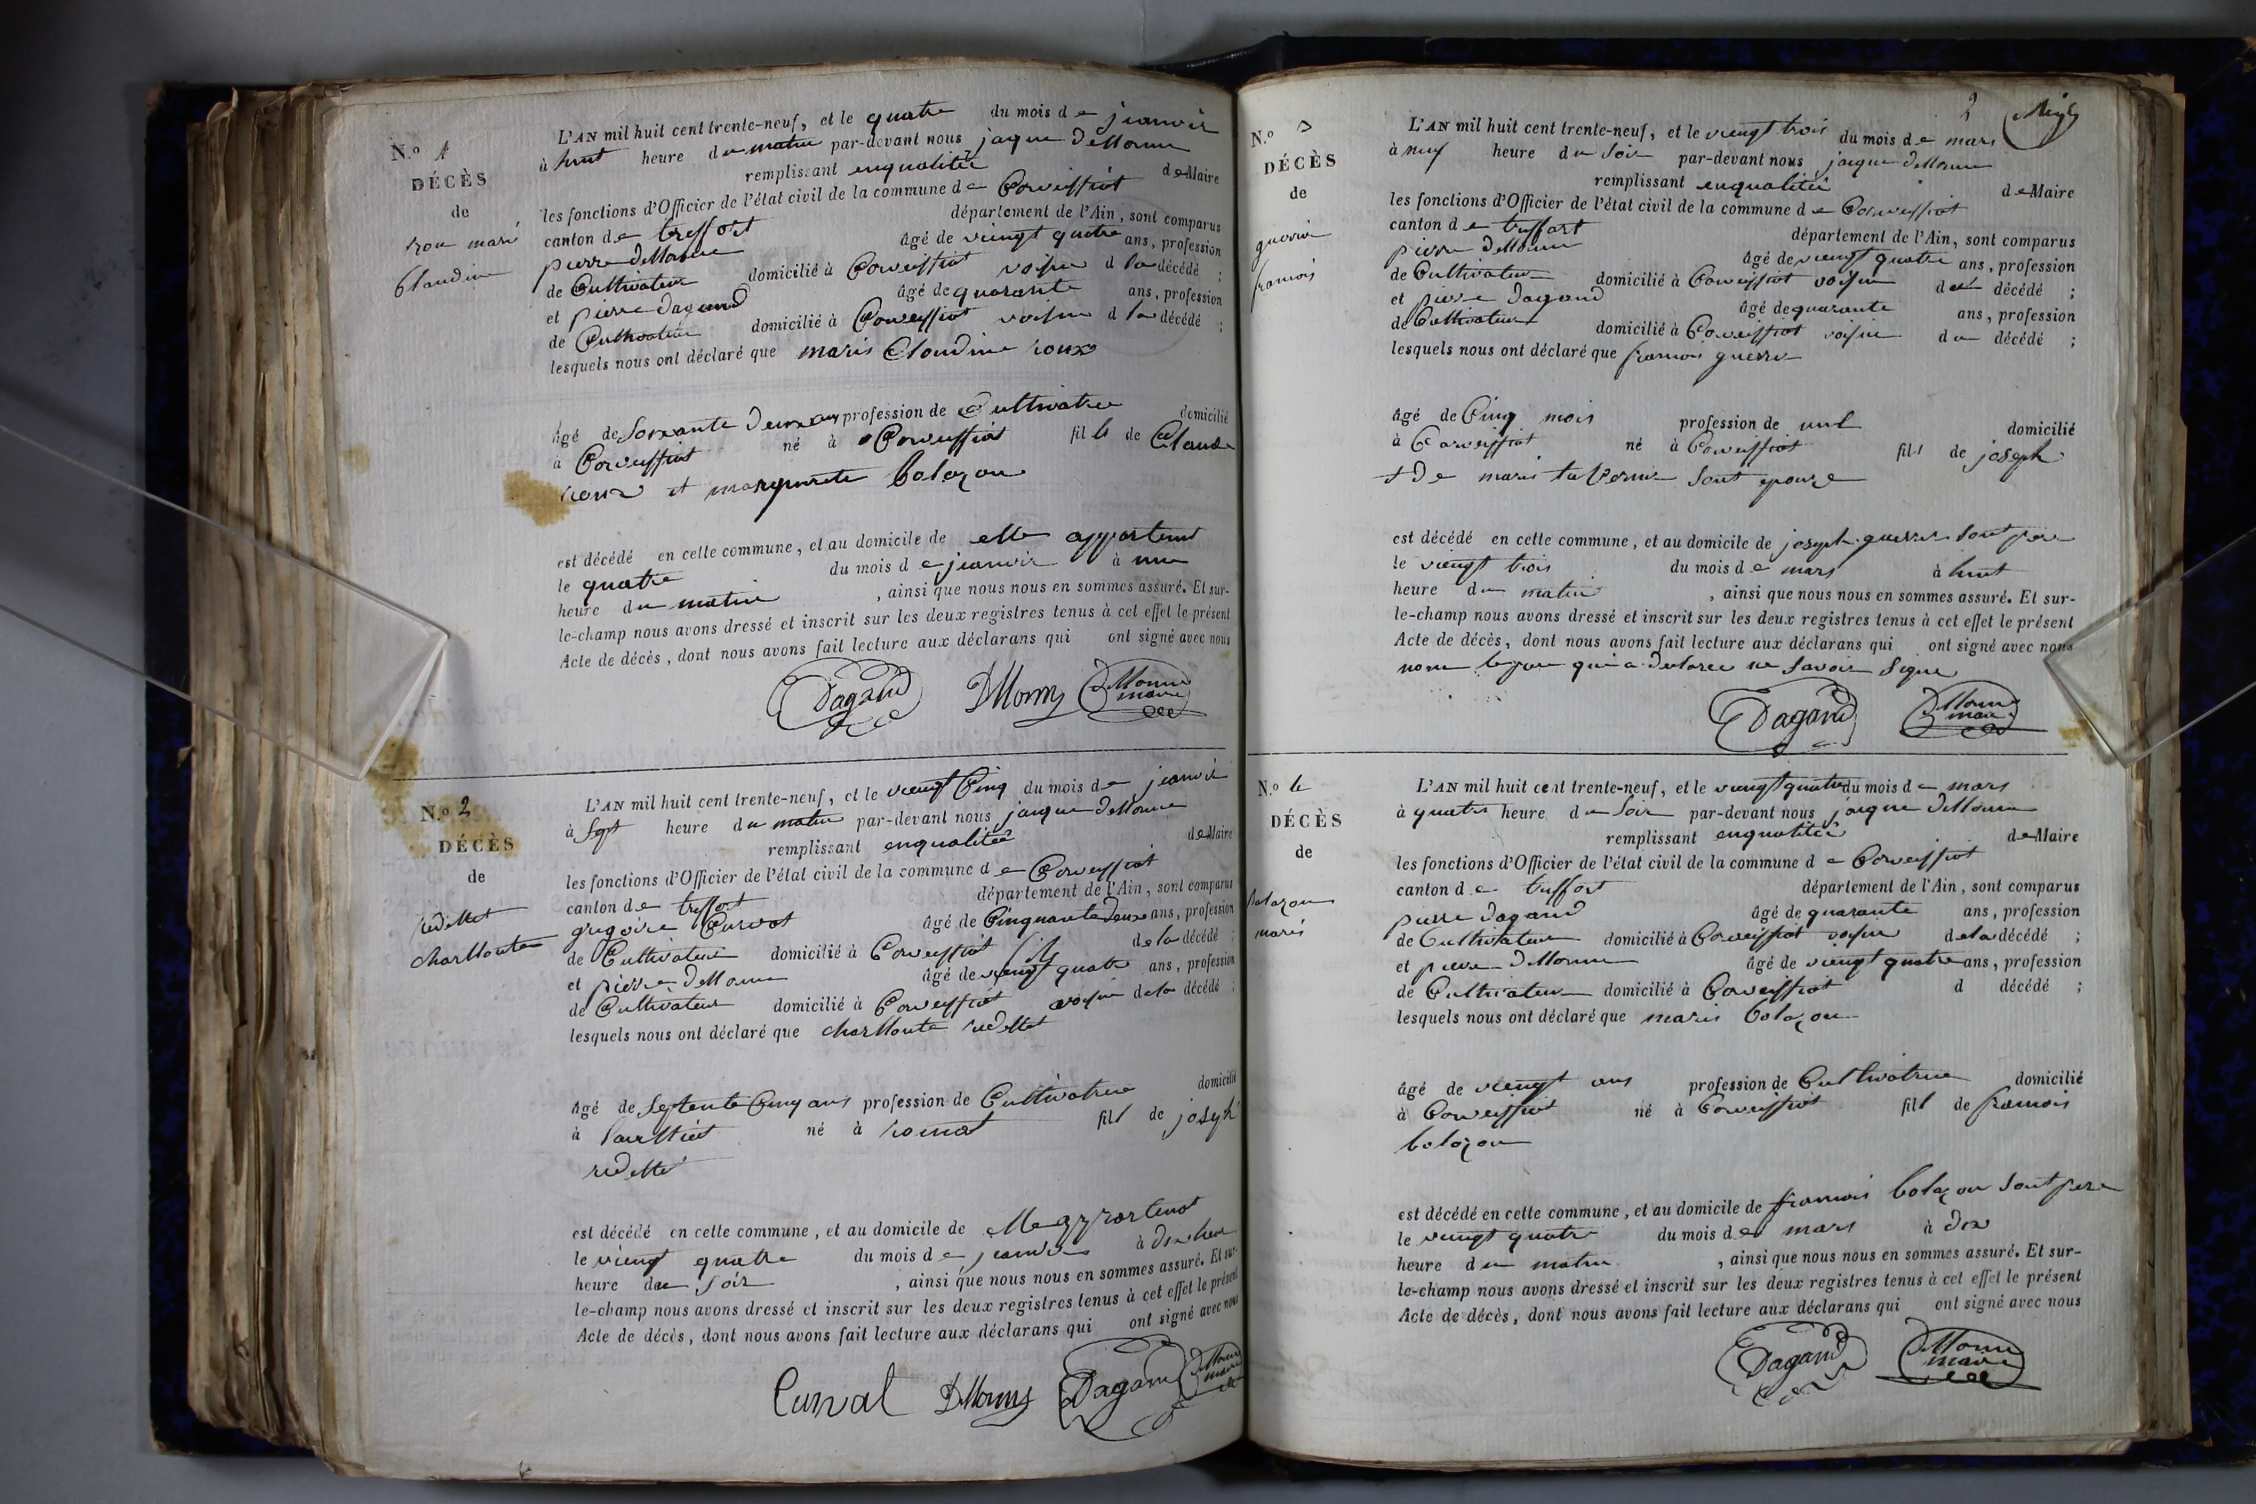 N.o 1
DÉCÈS
de
roux marie
Claudine
L'AN mil huit cent trente-neuf, et le quatre du mois de jeanvié
à huit heure du matin par-devant nous jaque deMonne
remplissant enqualitée de Maire
les fonctions d'Officier de l'état civil de la commune de Corveissiat
canton de treffort département de l'Ain, sont comparus
pierre deMonne âgé de viengt quatre ans, profession
de Cultivateur domicilié à Corveissiat voisin d la décédé ;
et pierre dagand âgé de quarante ans, profession
de Cultivateur domicilié à Corveissiat voisin d la décédé ;
lesquels nous ont déclaré que marie Claudine roux
âgé de Soixante deux ans profession de Cultivatrice domicilié
à Corveissiat né à Corveissiat fill de Claude
roux et marguerite bolozon
est décédé en cette commune, et au domicile de elle appartenent
le quatre du mois de jeanvié à une
heure du matin , ainsi que nous nous en sommes assuré. Et sur-
le-champ nous avons dressé et inscrit sur les deux registres tenus à cet effet le présent
Acte de décès, dont nous avons fait lecture aux déclarans qui ont signé avec nous
Dagand DMonne deMonne
maire
N.o 2
DÉCÈS
de
redettet
charllonte
L'AN mil huit cent trente-neuf, et le viengt Cinq du mois de jeanvié
à Sept heure du matin par-devant nous jaque deMonne
remplissant enqualitée de Maire
les fonctions d'Officier de l'état civil de la commune de Corveissiat
canton de treffort département de l'Ain, sont comparus
gregoire Curvat âgé de Cinquante deux ans, profession
de Cultivateur domicilié à Corveissiat fils de la décédé ;
et pierre deMonne âgé de viengt quatre ans, profession
de Cultivateur domicilié à Corveissiat voisin de la décédé ;
lesquels nous ont déclaré que charllonte redettet
âgé de Septente Cinq ans profession de Cultivatrice domicilié
à né à fill de joseph
redettet
est décédé en cette commune, et au domicile de elle appartenent
le viengt quatre du mois de jeanvié à dix heure
heure du Soir , ainsi que nous nous en sommes assuré. Et sur-
le-champ nous avons dressé et inscrit sur les deux registres tenus à cet effet le présent
Acte de décès, dont nous avons fait lecture aux déclarans qui ont signé avec nous
Curval DMonne Dagand deMonne
maire
2
N.o 3
DÉCÈS
de
guerrin
franois
L'AN mil huit cent trente-neuf, et le viengt trois du mois de mars
à neuf heure du Soir par-devant nous jaque deMonne
remplissant enqualitée de Maire
les fonctions d'Officier de l'état civil de la commune de Corveissiat
canton de treffort département de l'Ain, sont comparus
pierre deMonne âgé de viengt quatre ans, profession
de Cultivateur domicilié à Corveissiat voisin du décédé ;
et pierre dagand âgé de quarante ans, profession
de Cultivateur domicilié à Corveissiat voisin du décédé ;
lesquels nous ont déclaré que franois guerrin
âgé de Cinq mois profession de nul domicilié
à Corveissiat né à Corveissiat fils de joseph
+ De marie Sont epouze
est décédé en cette commune, et au domicile de joseph guerrin Sont pere
le viengt trois du mois de mars à huit
heure du matin , ainsi que nous nous en sommes assuré. Et sur-
le-champ nous avons dressé et inscrit sur les deux registres tenus à cet effet le présent
Acte de décès, dont nous avons fait lecture aux déclarans qui ont signé avec nous
nonn le pere qui a declaree ne Savoir Signe
Dagand deMonne
maire
N.o 4
DÉCÈS
de
bolozon
marie
L'AN mil huit cent trente-neuf, et le viengt quatre du mois de mars
à quatre heure du Soir par-devant nous jaque deMonne
remplissant enqualitée de Maire
les fonctions d'Officier de l'état civil de la commune de Corveissiat
canton de treffort département de l'Ain, sont comparus
pierre dagand âgé de quarante ans, profession
de Cultivateur domicilié à Corveissiat voisin de la décédé ;
et pierre deMonne âgé de viengt quatre ans, profession
de Cultivateur domicilié à Corveissiat d décédé ;
lesquels nous ont déclaré que marie bolozon
âgé de viengt ans profession de Cultivatrice domicilié
à Corveissiat né à Corveissiat fill de franois
bolozon
est décédé en cette commune, et au domicile de franois bolozon Sont pere
le viengt quatre du mois de mars à dix
heure du matin , ainsi que nous nous en sommes assuré. Et sur-
le-champ nous avons dressé et inscrit sur les deux registres tenus à cet effet le présent
Acte de décès, dont nous avons fait lecture aux déclarans qui ont signé avec nous
Dagand deMonne
maire